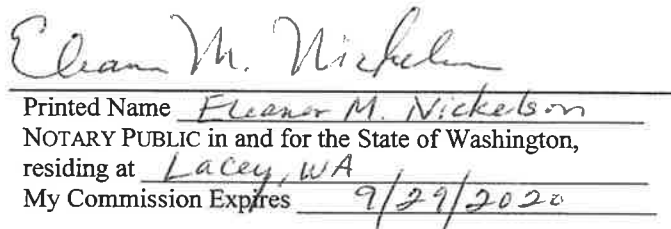 Eleanor M. Nickelson
Printed Name Eleanor M. Nickelson
NOTARY PUBLIC in and for the State of Washington,
residing at Lacey, WA
My Commission Expires 9/29/2020